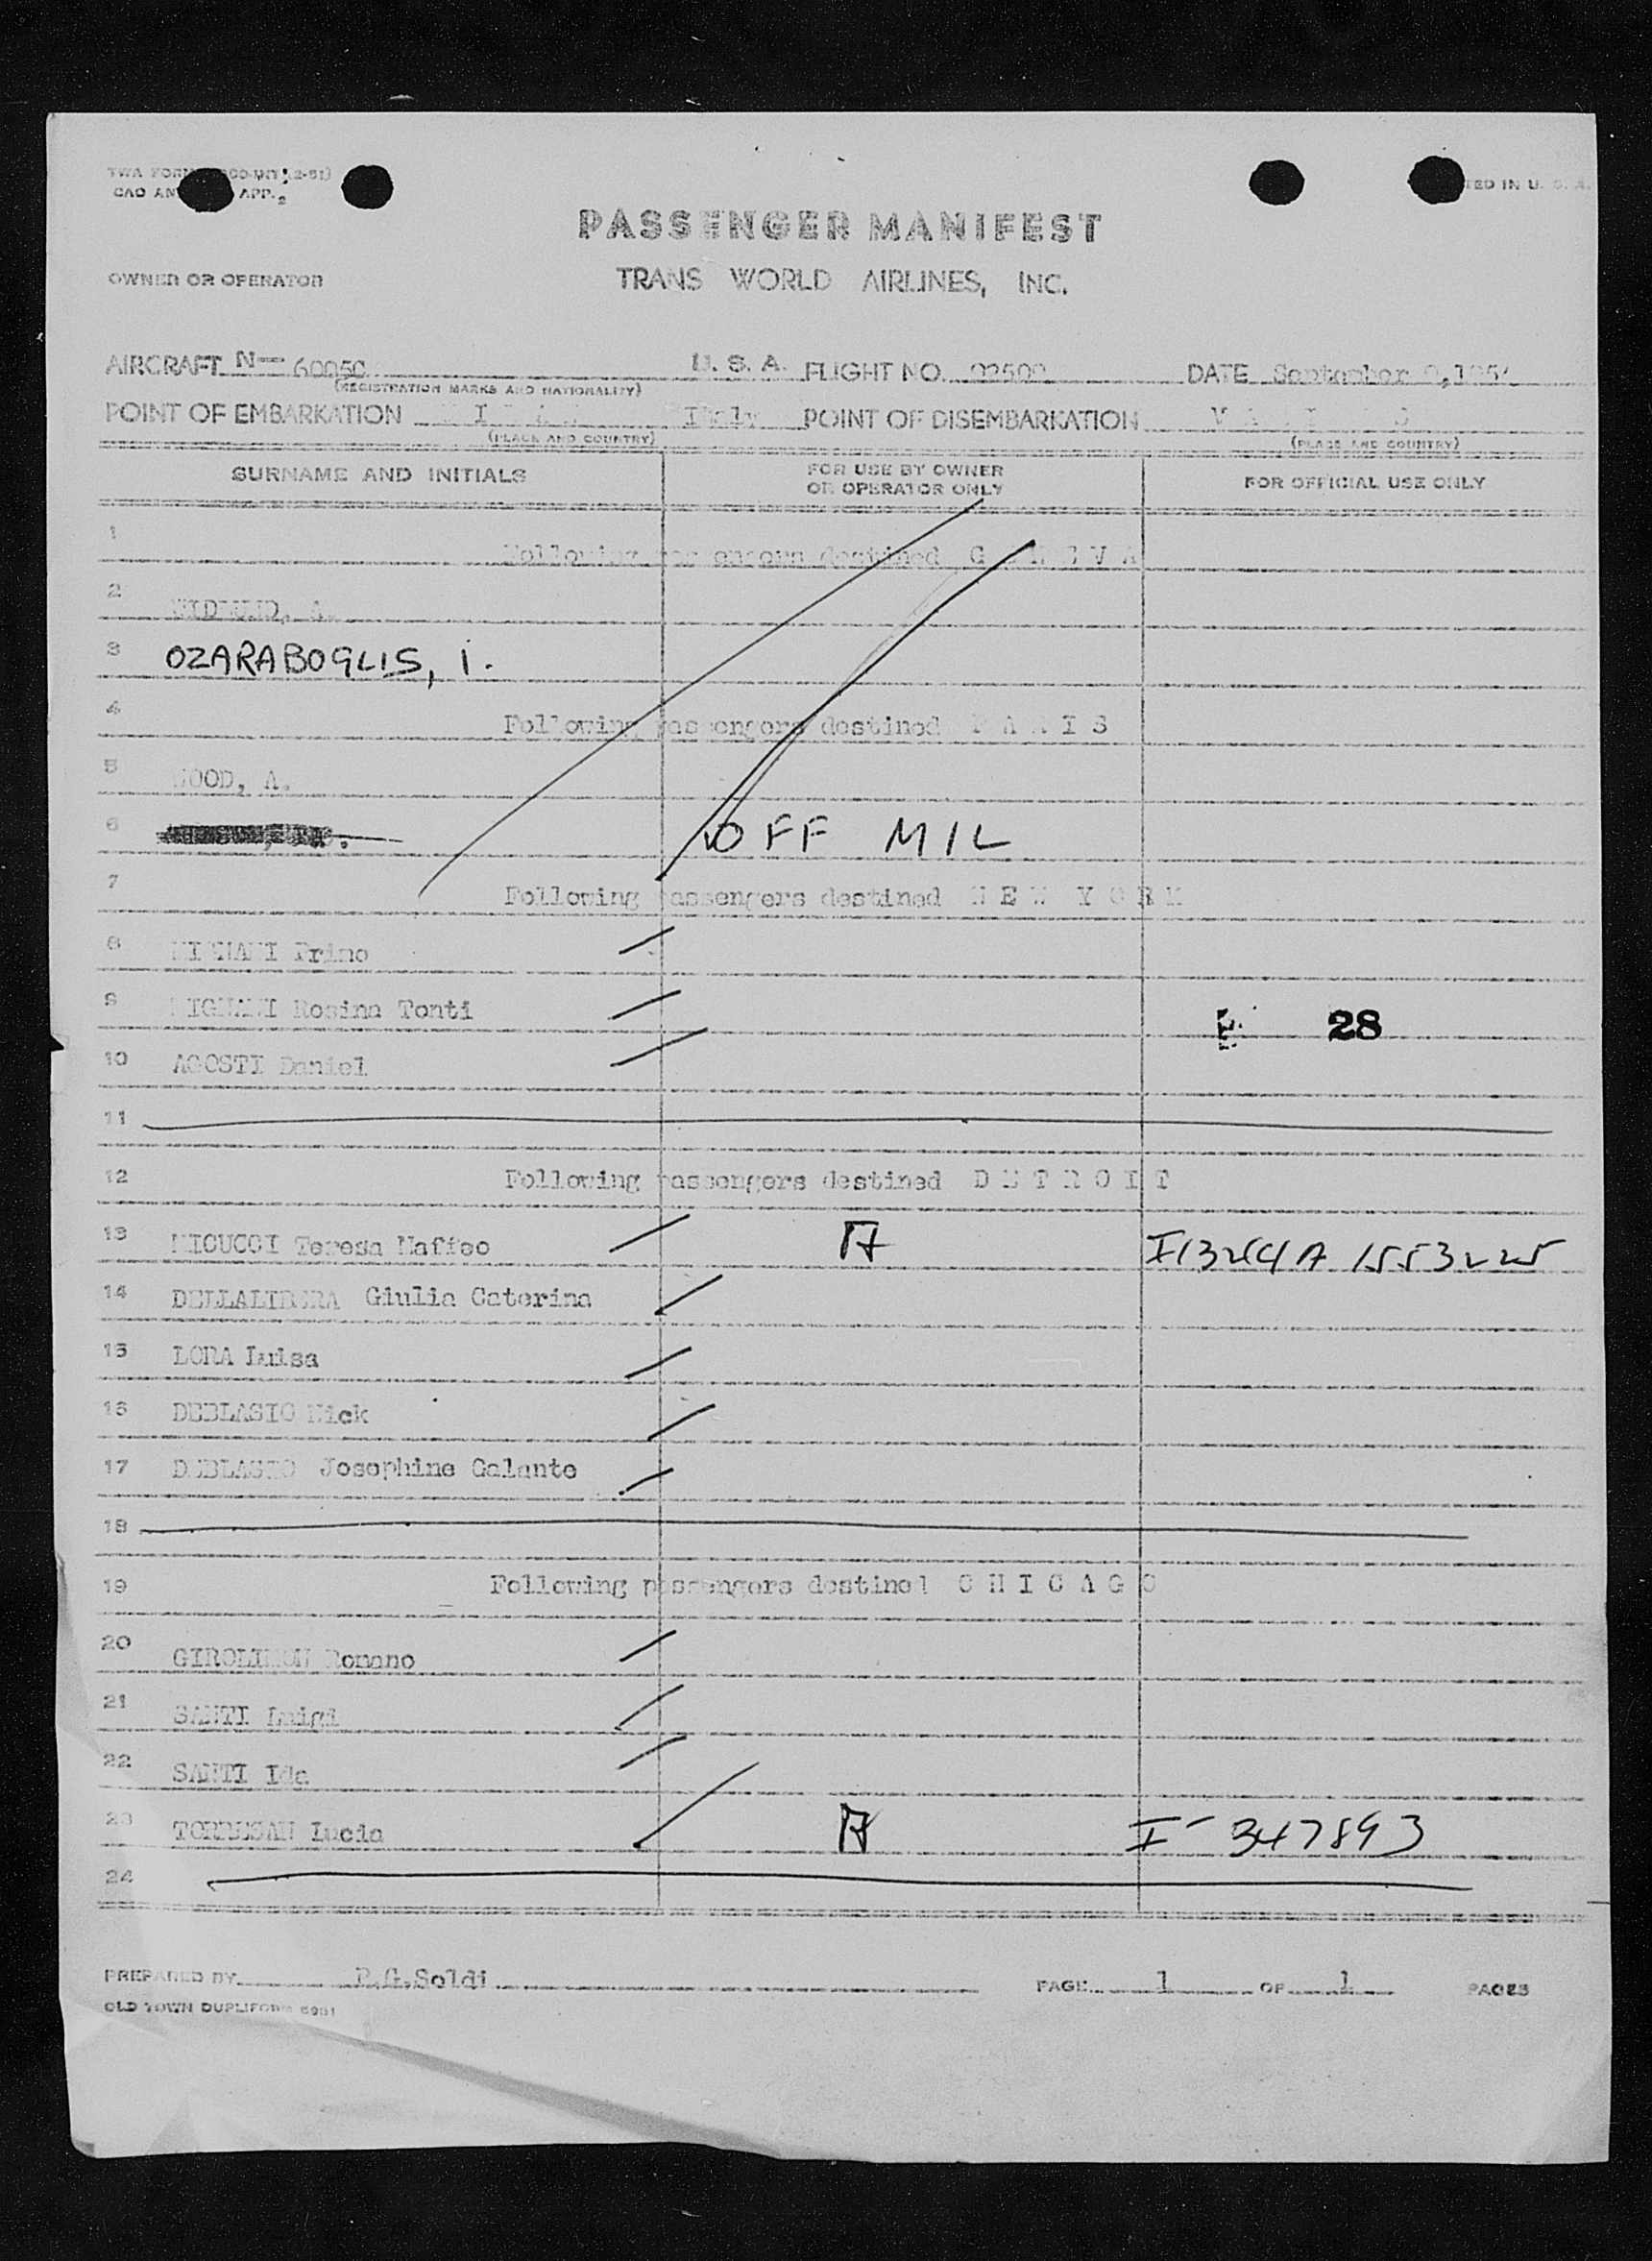 TWA FORM
CAO APP.
IN U. S. A.
PASSENGER MANIFEST
OWNER OR OPERATOR
TRANS WORLD AIRLINES, INC.
AIRCRAFT N— U. S. A. FLIGHT NO. DATE September
(REGISTRATION MARKS AND NATIONALITY)
POINT OF EMBARKATION Italy POINT OF DISEMBARKATION
(PLACE AND COUNTRY) (PLACE AND COUNTRY)
SURNAME AND INITIALS FOR USE BY OWNER OR OPERATOR ONLY FOR OFFICIAL USE ONLY
1 Following passengers destined G E N E V A
2
3 OZARABOGLIS, I.
4 Following passengers destined P A R I S
5 WOOD, A.
6 OFF MIL
7 Following passengers destined N E W Y O R K
8 Primo
9 MIGNANI Rosina Tonti
28
10 AGOSTI Daniel
11
12 Following passengers destined D E T R O I T
13 MICUCCI Teresa Maffeo A
14 Giulia Caterina
15 LORA Luisa
16 DEBLASIO Nick
17 DEBLASIO Josephine Galante
18
19 Following passengers destined C H I C A G O
20 Romano
21 SANTI Luigi
22 SANTI Ida
23 TORRESAN Lucia A I- 347893
24
PREPARED BY Soldi PAGE 1 OF 1 PAGES
OLD TOWN DUPLIFORM